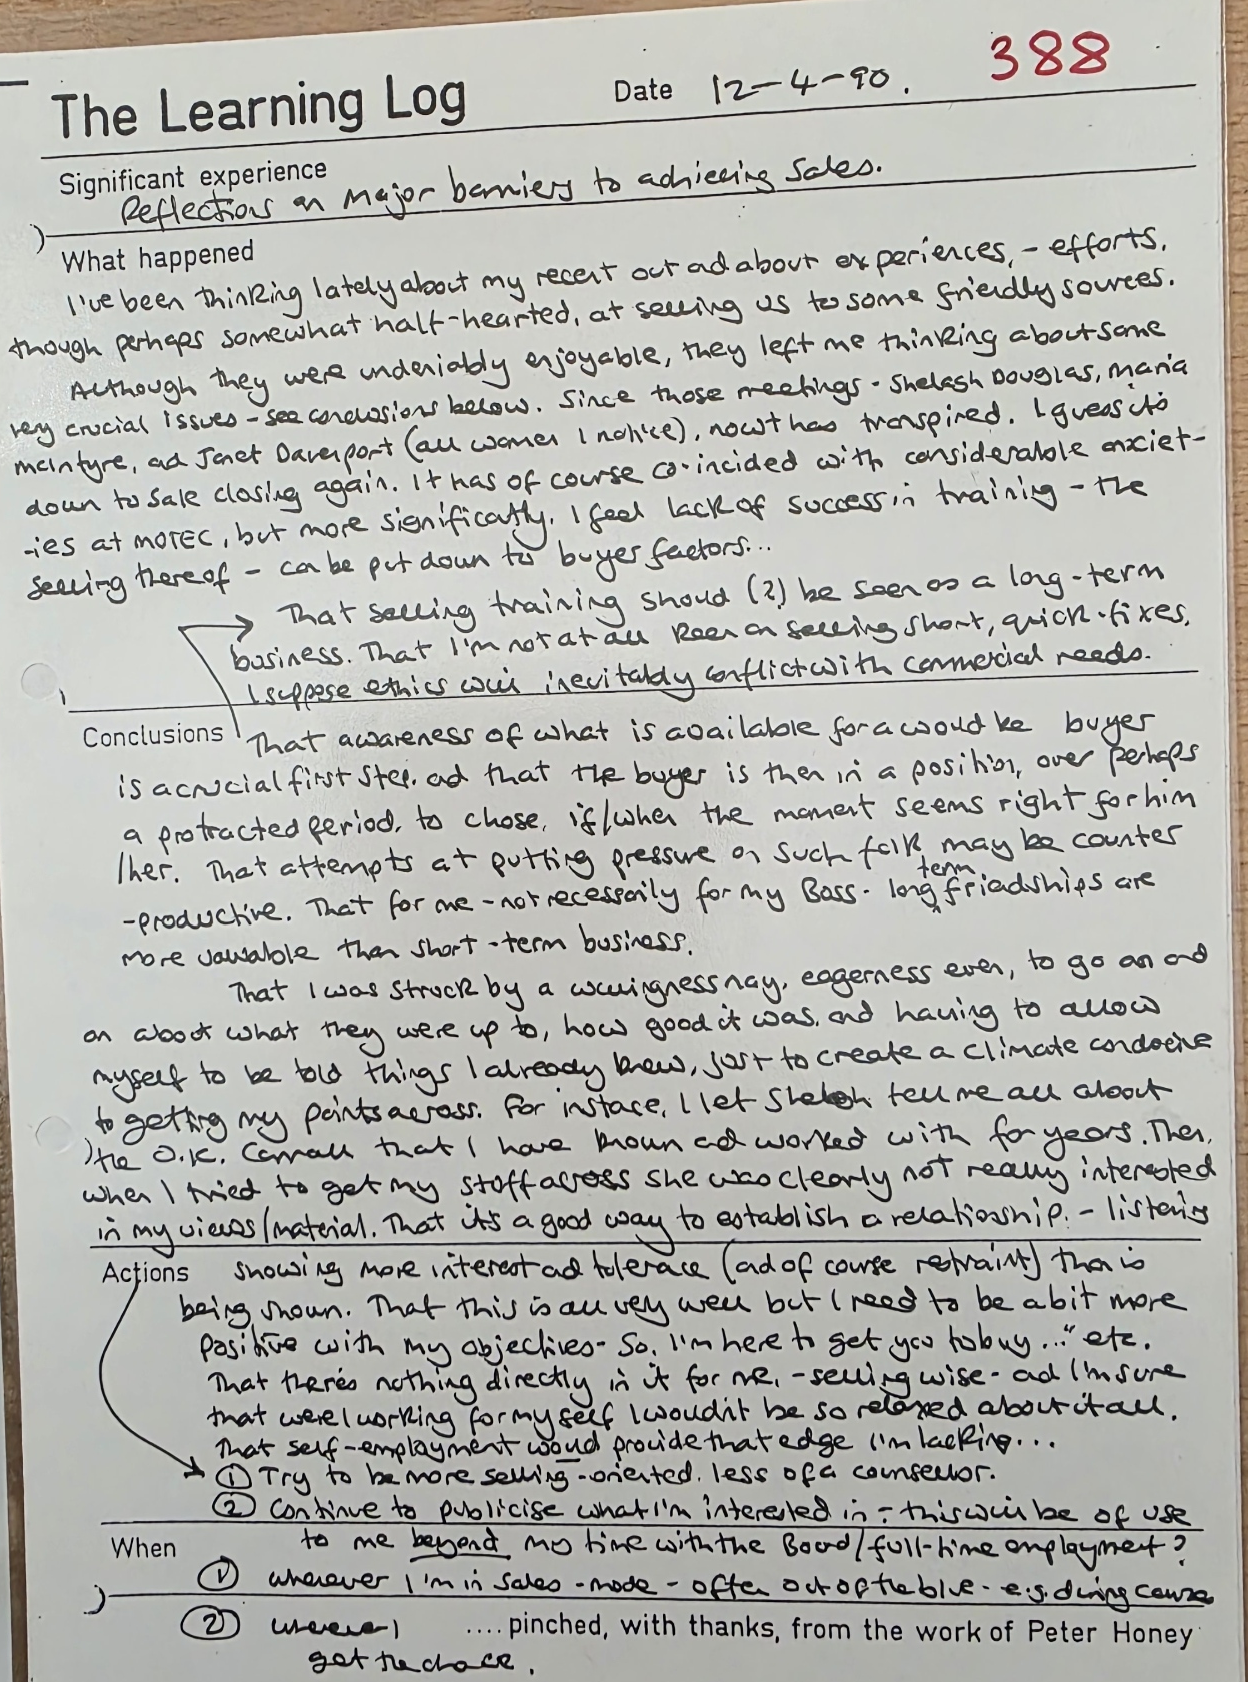 388
The Learning Log
Date 12-4-90.
Significant experience
Reflections on major barriers to achieving sales.
What happened
I've been thinking lately about my recent out ad about experiences, - efforts,
though perhaps somewhat half-hearted, at selling us to some friendly sources.
Although they were undeniably enjoyable, they left me thinking about some
very crucial issues - see conclusions below. Since those meetings - Shelagh Douglas, Maria
McIntyre, ad Janet Davenport (all women I notice), nowt has transpired. I guess its
down to sale closing again. It has of course co-incided with considerable anxiet-
-ies at MOTEC, but more significantly, I feel lack of success in training - the
selling thereof - can be put down to buyer factors...
That selling training should (?) be seen as a long-term
business. That I'm not at all keen on selling short, quick-fixes,
I suppose ethics will inevitably conflict with commercial needs.
Conclusions
That awareness of what is available for a would be buyer
is a crucial first step. ad that the buyer is then in a position, over perhaps
a protracted period, to chose, if/when the moment seems right for him
/her. That attempts at putting pressure on such folk may be counter
-productive. That for me - not necessarily for my Boss - long term friendships are
more valuable than short-term business.
That I was struck by a willingness nay, eagerness even, to go on and
on about what they were up to, how good it was, and having to allow
myself to be told things I already knew, just to create a climate conducive
to getting my points across. For instace, I let Shelagh tell me all about
the O.K. Corrall that I have known ad worked with for years. Then,
when I tried to get my stuff across she was clearly not really interested
in my views/material. That it's a good way to establish a relationship. - listening
Actions
showing more interest ad tolerace (ad of course restraint) than is
being shown. That this is all very well but I need to be a bit more
positive with my objectives - So, I'm here to get you to buy..." etc.
That there's nothing directly in it for me, - selling wise - ad I'm sure
that were I working for myself I wouldn't be so relaxed about it all.
That self-employment would provide that edge I'm lacking...
① Try to be more selling-oriented. less of a counsellor.
② Continue to publicise what I'm interested in - this will be of use
to me beyond my time with the Board/full-time employment?
When
① whenever I'm in sales-mode - often out of the blue - e.g. during course
② whenever I
get the chance.
....pinched, with thanks, from the work of Peter Honey